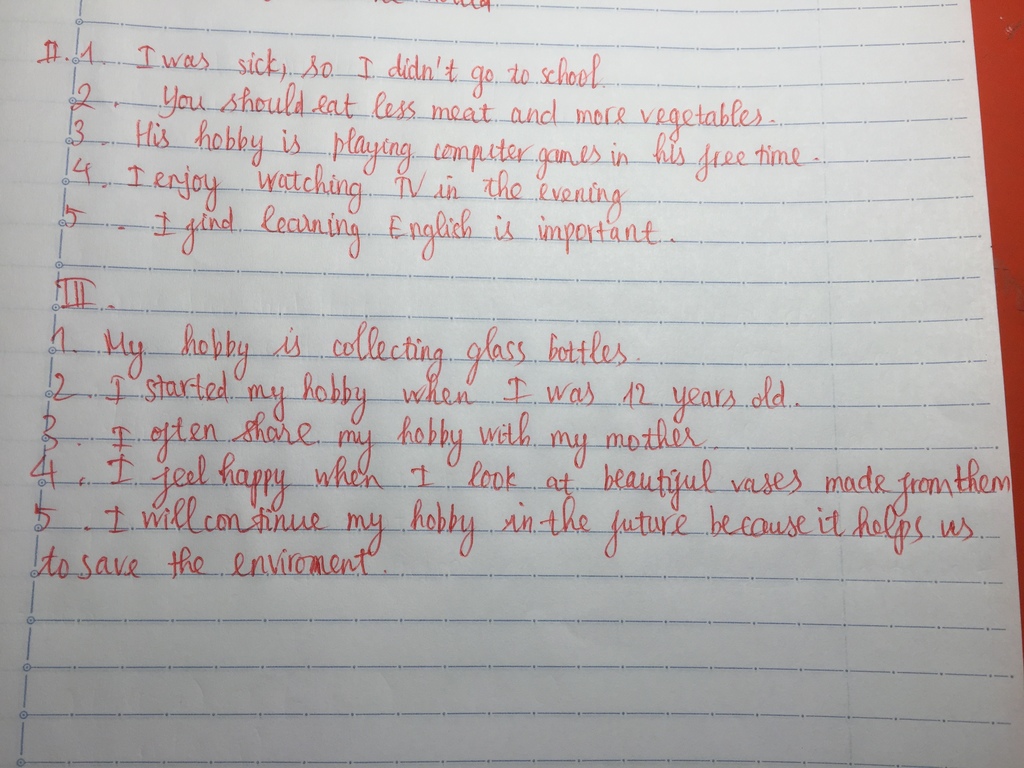 II. 1. I was sick, so I didn't go to school.
2. You should eat less meat and more vegetables.
3. His hobby is playing computer games in his free time.
4. I enjoy watching TV in the evening
5. I find learning English is important.
III.
1. My hobby is collecting glass bottles.
2. I started my hobby when I was 12 years old.
3. I often share my hobby with my mother.
4. I feel happy when I look at beautiful vases made from them
5. I will continue my hobby in the future because it helps us
to save the enviroment.